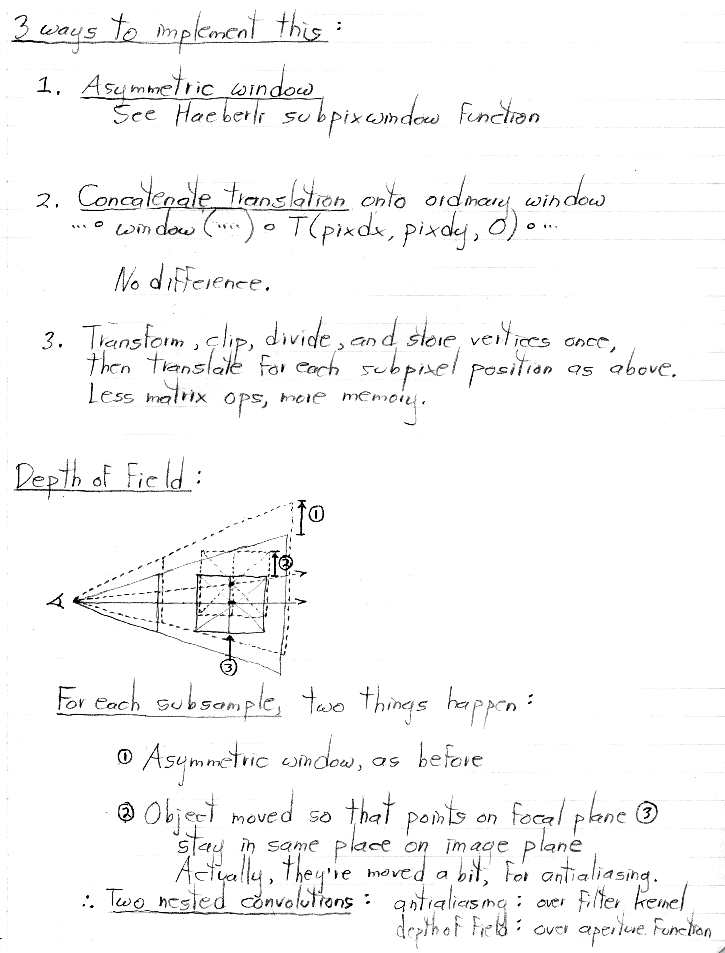 3 ways to implement this :
1. Asymmetric window
See Haeberli subpixwindow function
2. Concatenate translation onto ordinary window
... ∘ window (....) ∘ T(pixdx, pixdy, 0) ∘ ...
No difference.
3. Transform, clip, divide, and store vertices once,
then translate for each subpixel position as above.
Less matrix ops, more memory.
Depth of Field :
①
②
③
For each subsample, two things happen :
① Asymmetric window, as before
② Object moved so that points on focal plane ③
stay in same place on image plane
Actually, they're moved a bit, for antialiasing.
∴ Two nested convolutions : antialiasing : over filter kernel
depth of field : over aperture function